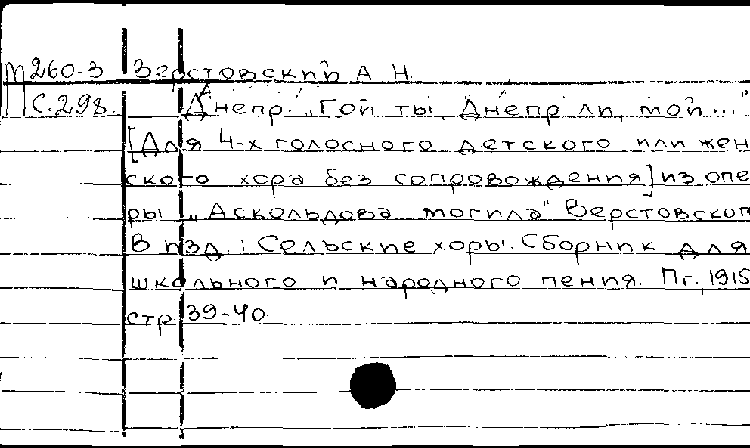 М 260-3 Верстовский А Н.
С.298. Днепр. „Гой ты, Днепр ли, мой..."
[Для 4-х голосного детского или жен
ского хора без сопровождения] из опе
ры „Аскольдова могила" Верстовског
В изд.: Сельские хоры. Сборник для
школьного и народного пения. Пг., 1915
стр 39-40